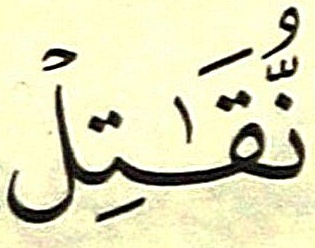 نُّقَـٰتِلْ